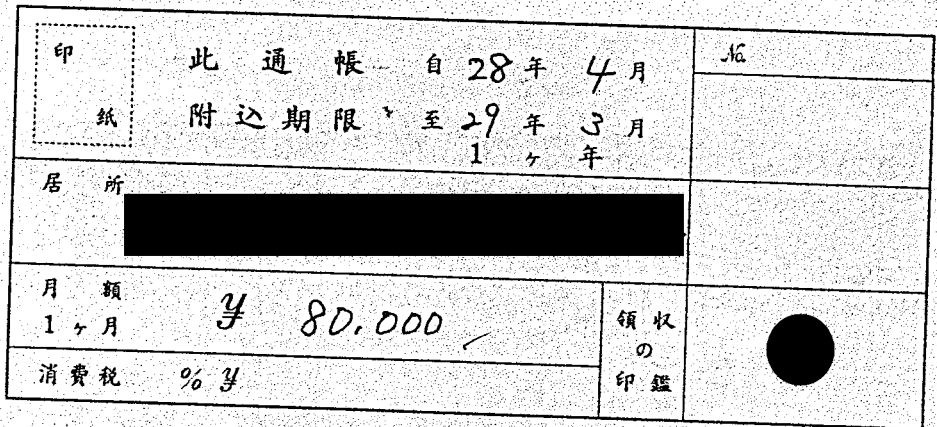 印紙
此通帳 自 28年 4月
附込期限 至 29年 3月
1ヶ年
No.
居所
月額
1ヶ月
¥ 80,000
消費税 % ¥
領収
の
印鑑